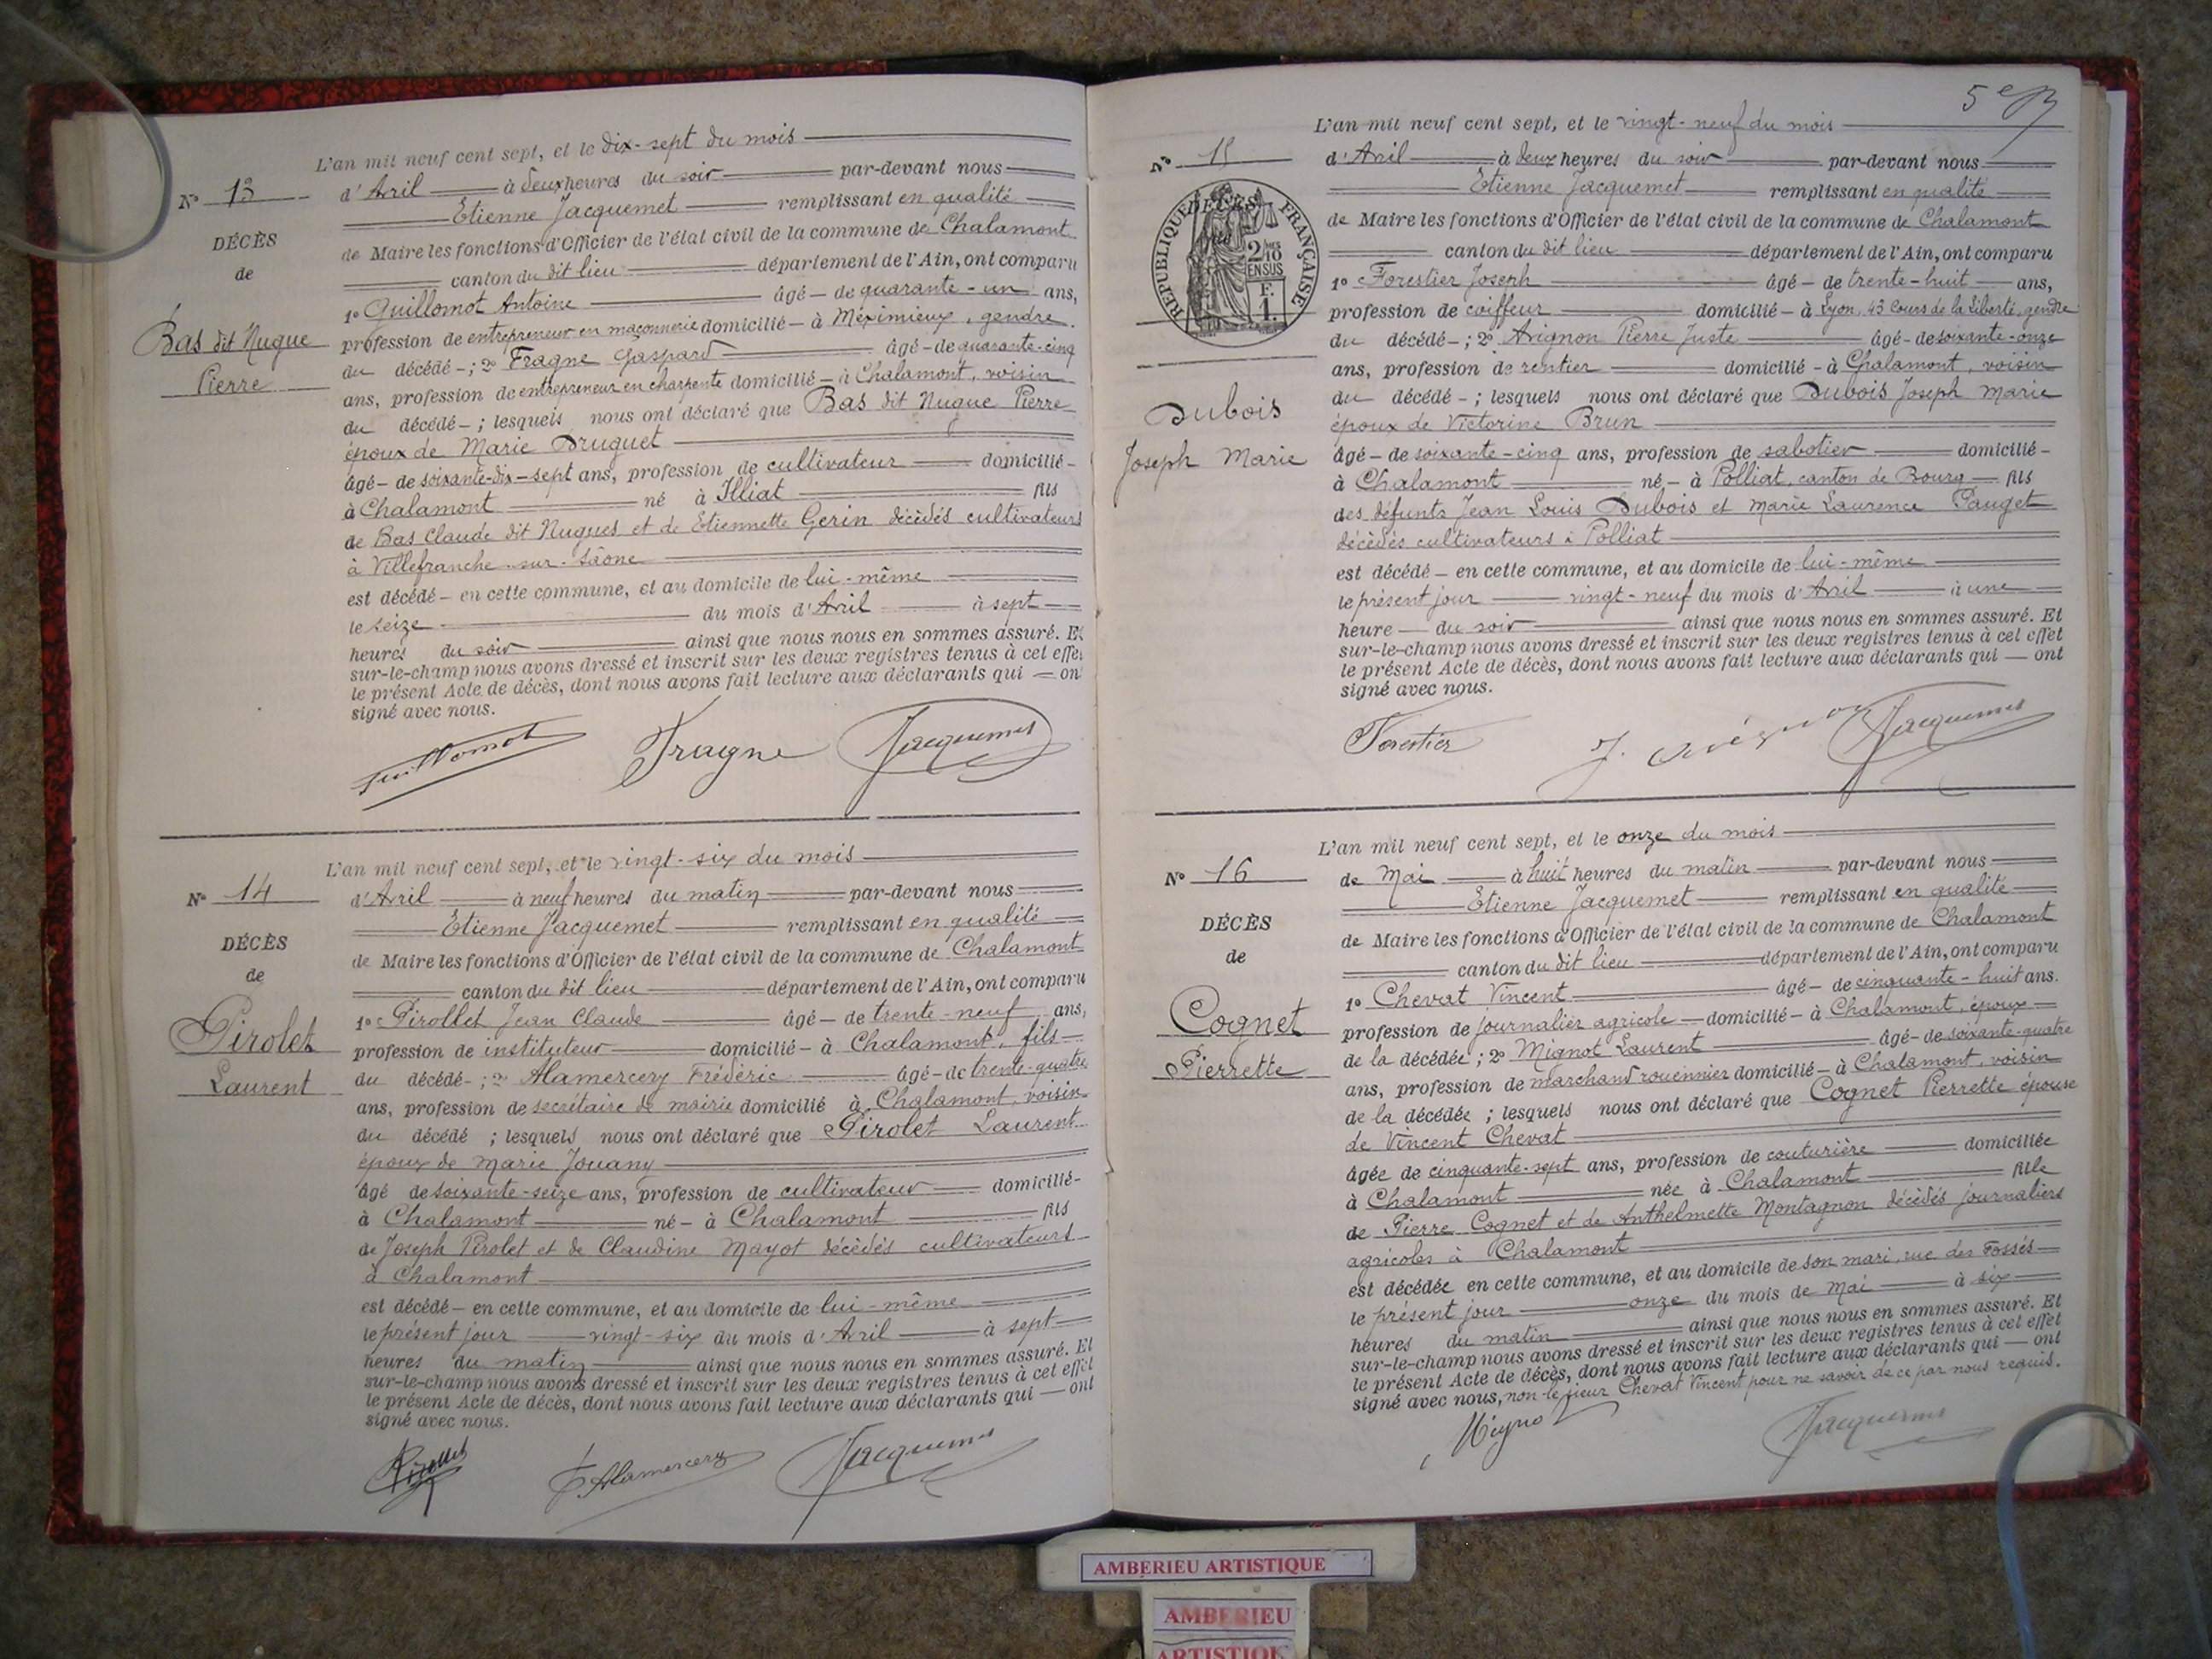 L'an mil neuf cent sept, et le dix-sept du mois
N° 13
d'Avril à deux heures du soir par-devant nous
Etienne Jacquemet remplissant en qualité
DÉCÈS
de Maire les fonctions d'Officier de l'état civil de la commune de Chalamont
de
canton du dit lieu département de l'Ain, ont comparu
1° Guillomot Antoine âgé de quarante-un ans,
Bas dit Nugue
profession de entrepreneur en maçonnerie domicilié à Méximieux, gendre
Pierre
du décédé ; 2° Fragne Gaspard âgé de quarante-cinq
ans, profession de entrepreneur en charpente domicilié à Chalamont, voisin
du décédé ; lesquels nous ont déclaré que Bas dit Nugue Pierre
époux de Marie Druguet
âgé de soixante-dix-sept ans, profession de cultivateur domicilié
à Chalamont né à Illiat fils
de Bas Claude dit Nugues et de Etiennette Gerin décédés cultivateurs
à Villefranche-sur-Saône
est décédé en cette commune, et au domicile de lui-même
le seize du mois d'Avril à sept
heures du soir ainsi que nous nous en sommes assuré. Et
sur-le-champ nous avons dressé et inscrit sur les deux registres tenus à cet effet
le présent Acte de décès, dont nous avons fait lecture aux déclarants qui ont
signé avec nous.
Guillomot Fragne Jacquemet
L'an mil neuf cent sept, et le vingt-six du mois
N° 14
d'Avril à neuf heures du matin par-devant nous
Etienne Jacquemet remplissant en qualité
DÉCÈS
de Maire les fonctions d'Officier de l'état civil de la commune de Chalamont
de
canton du dit lieu département de l'Ain, ont comparu
1° Pirollet Jean Claude âgé de trente-neuf ans,
Pirolet
profession de instituteur domicilié à Chalamont, fils
Laurent
du décédé ; 2° Alamercery Frédéric âgé de trente-quatre
ans, profession de secrétaire de mairie domicilié à Chalamont, voisin
du décédé ; lesquels nous ont déclaré que Pirolet Laurent
époux de Marie Jouany
âgé de soixante-seize ans, profession de cultivateur domicilié
à Chalamont né à Chalamont fils
de Joseph Pirolet et de Claudine Mayot décédés cultivateurs
à Chalamont
est décédé en cette commune, et au domicile de lui-même
le présent jour vingt-six du mois d'Avril à sept
heures du matin ainsi que nous nous en sommes assuré. Et
sur-le-champ nous avons dressé et inscrit sur les deux registres tenus à cet effet
le présent Acte de décès, dont nous avons fait lecture aux déclarants qui ont
signé avec nous.
Pirollet F. Alamercery Jacquemet
5e
L'an mil neuf cent sept, et le vingt-neuf du mois
N° 15
d'Avril à deux heures du soir par-devant nous
Etienne Jacquemet remplissant en qualité
RÉPUBLIQUE FRANÇAISE
DÉCÈS
2/10 EN SUS
F. 1.
de Maire les fonctions d'Officier de l'état civil de la commune de Chalamont
canton du dit lieu département de l'Ain, ont comparu
1° Forestier Joseph âgé de trente-huit ans,
profession de coiffeur domicilié à Lyon, 43 Cours de la Liberté, gendre
du décédé ; 2° Avignon Pierre Juste âgé de soixante-onze
ans, profession de rentier domicilié à Chalamont, voisin
Dubois
du décédé ; lesquels nous ont déclaré que Dubois Joseph Marie
époux de Victorine Brun
Joseph Marie
âgé de soixante-cinq ans, profession de sabotier domicilié
à Chalamont né à Polliat, canton de Bourg fils
des défunts Jean Louis Dubois et Marie Laurence Pauget
décédés cultivateurs à Polliat
est décédé en cette commune, et au domicile de lui-même
le présent jour vingt-neuf du mois d'Avril à une
heure du soir ainsi que nous nous en sommes assuré. Et
sur-le-champ nous avons dressé et inscrit sur les deux registres tenus à cet effet
le présent Acte de décès, dont nous avons fait lecture aux déclarants qui ont
signé avec nous.
Forestier J. Avignon Jacquemet
L'an mil neuf cent sept, et le onze du mois
N° 16
de Mai à huit heures du matin par-devant nous
Etienne Jacquemet remplissant en qualité
DÉCÈS
de Maire les fonctions d'Officier de l'état civil de la commune de Chalamont
de
canton du dit lieu département de l'Ain, ont comparu
1° Chevat Vincent âgé de cinquante-huit ans.
Cognet
profession de journalier agricole domicilié à Chalamont, époux
Pierrette
de la décédée ; 2° Mignot Laurent âgé de soixante-quatre
ans, profession de marchand rouennier domicilié à Chalamont, voisin
de la décédée ; lesquels nous ont déclaré que Cognet Pierrette épouse
de Vincent Chevat
âgée de cinquante-sept ans, profession de couturière domiciliée
à Chalamont née à Chalamont fille
de Pierre Cognet et de Anthelmette Montagnon décédés journaliers
agricoles à Chalamont
est décédée en cette commune, et au domicile de son mari, rue des Fossés
le présent jour onze du mois de Mai à six
heures du matin ainsi que nous nous en sommes assuré. Et
sur-le-champ nous avons dressé et inscrit sur les deux registres tenus à cet effet
le présent Acte de décès, dont nous avons fait lecture aux déclarants qui ont
signé avec nous, non le sieur Chevat Vincent pour ne savoir de ce par nous requis.
Mignot Jacquemet
AMBERIEU ARTISTIQUE
AMBERIEU
ARTISTIQUE